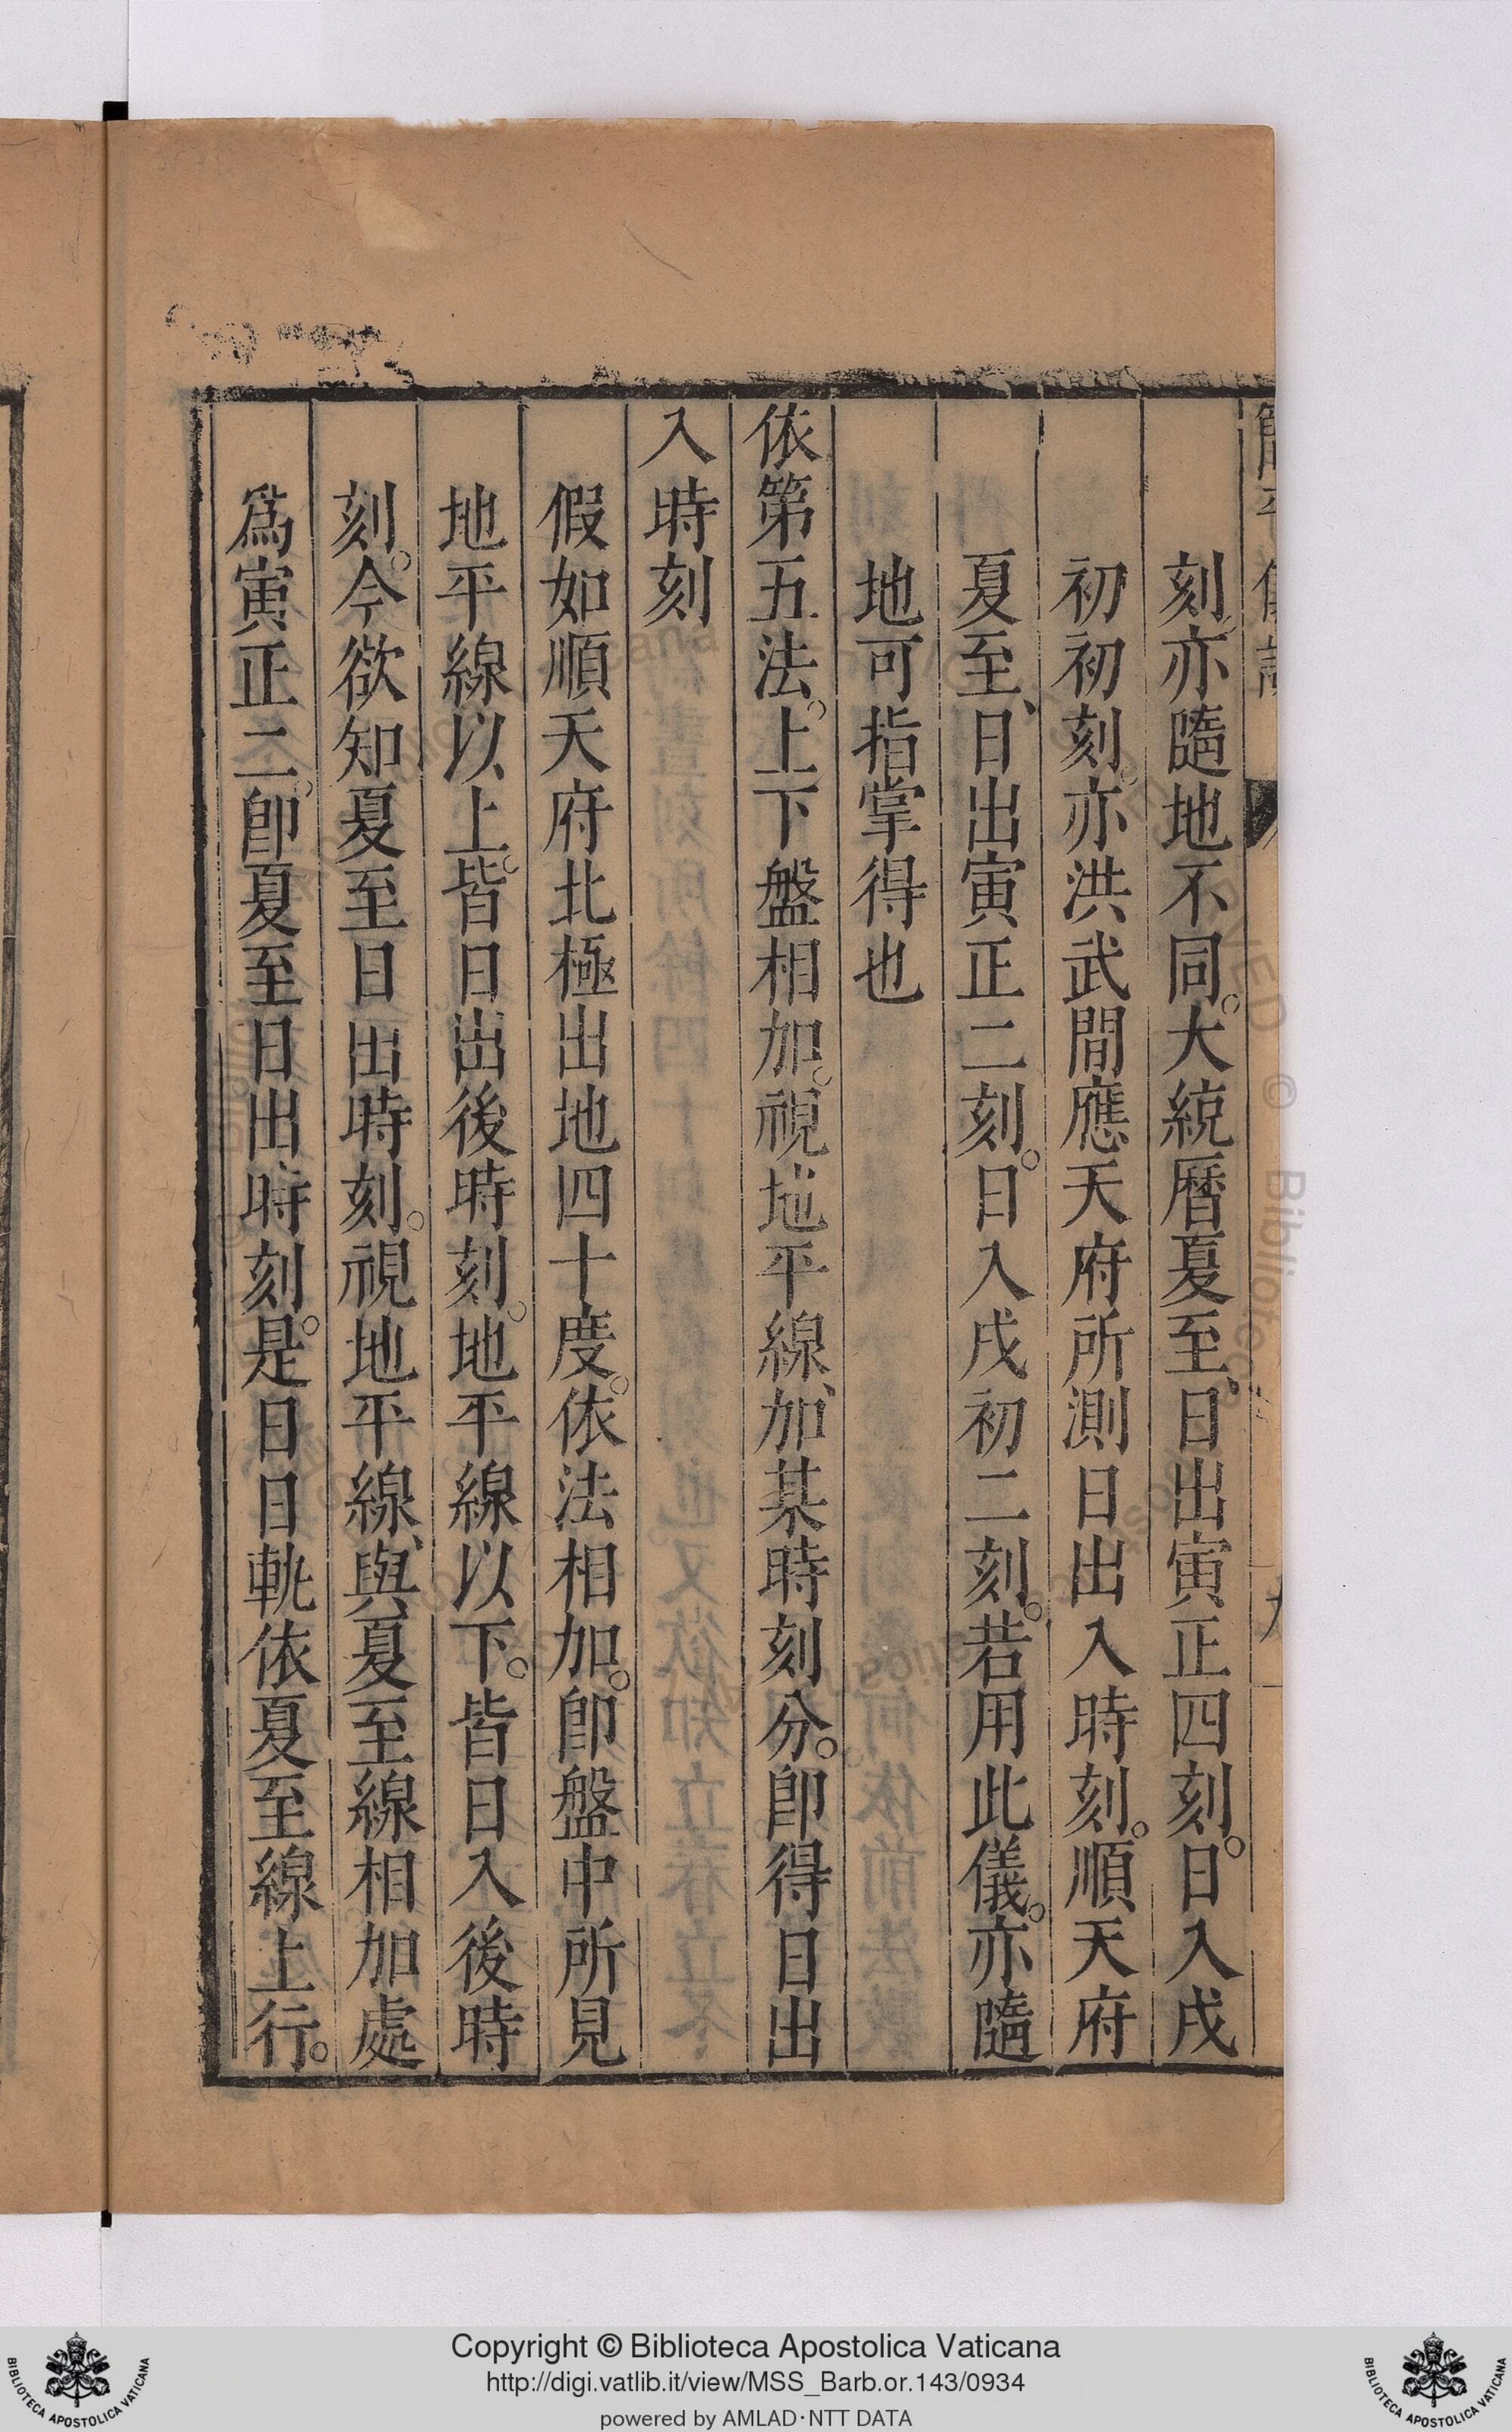 刻亦隨地不同。大統曆夏至、日出寅正四刻。日入戌
初初刻。亦洪武間應天府所測日出入時刻。順天府
夏至、日出寅正二刻。日入戌初二刻。若用此儀。亦隨
地可指掌得也
依第五法。上下盤相加。視地平線、加某時刻分。卽得日出
入時刻
假如順天府北極出地四十度。依法相加。卽盤中所見
地平線以上。皆日出後時刻。地平線以下。皆日入後時
刻。今欲知夏至日出時刻。視地平線、與夏至線相加處
爲寅正二。卽夏至日出時刻。是日日軌依夏至線上行。
Copyright © Biblioteca Apostolica Vaticana
http://digi.vatlib.it/view/MSS_Barb.or.143/0934
powered by AMLAD·NTT DATA
BIBLIOTECA APOSTOLICA VATICANA
BIBLIOTECA APOSTOLICA VATICANA